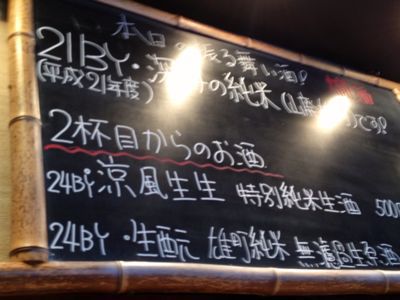 本日の振る舞い酒!
21BY・深 の純米(山 )です!
(平成21年度)
2杯目からのお酒
24BY 涼風生生 特別純米生酒 500
24BY・生酛 雄町純米 無濾過生原酒